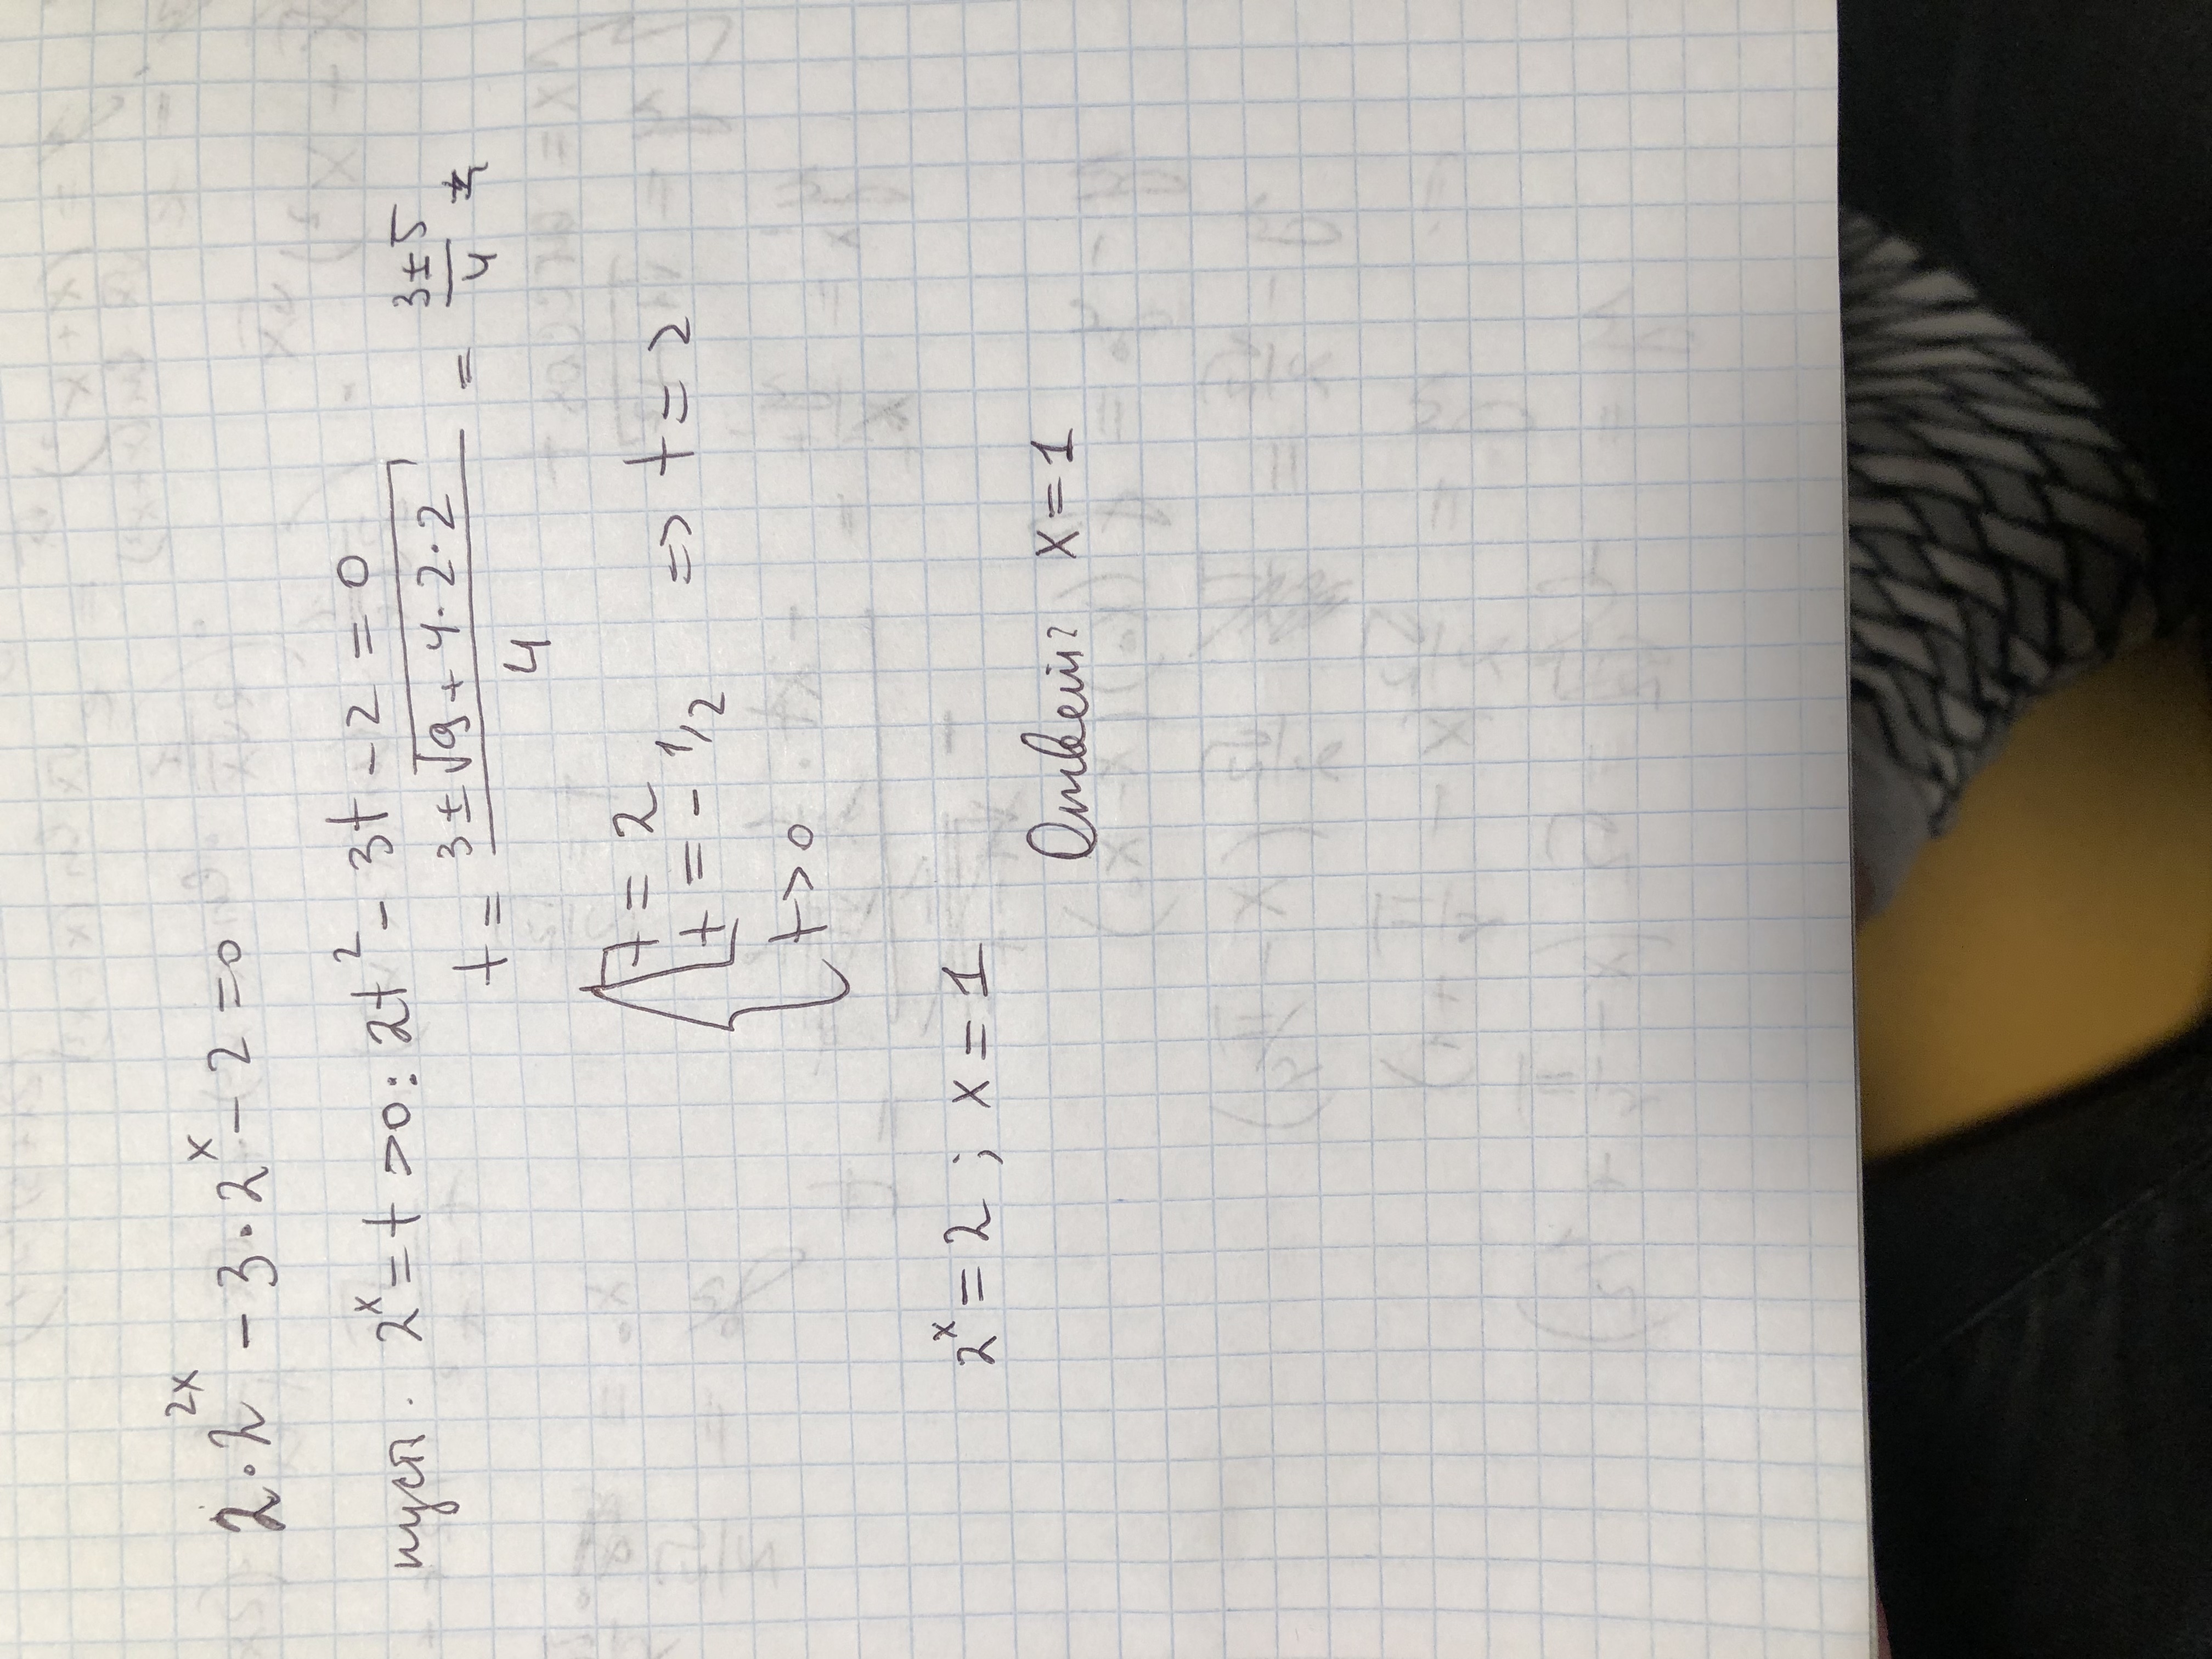 2·2^{2x} - 3·2^x - 2 = 0
пуст. 2^x = t > 0: 2t^2 - 3t - 2 = 0
t = \frac{3 ± \sqrt{9 + 4·2·2}}{4} = \frac{3 ± 5}{4}
t = 2
t = - 1/2
t > 0
=> t = 2
2^x = 2; x = 1
Ответ: x = 1